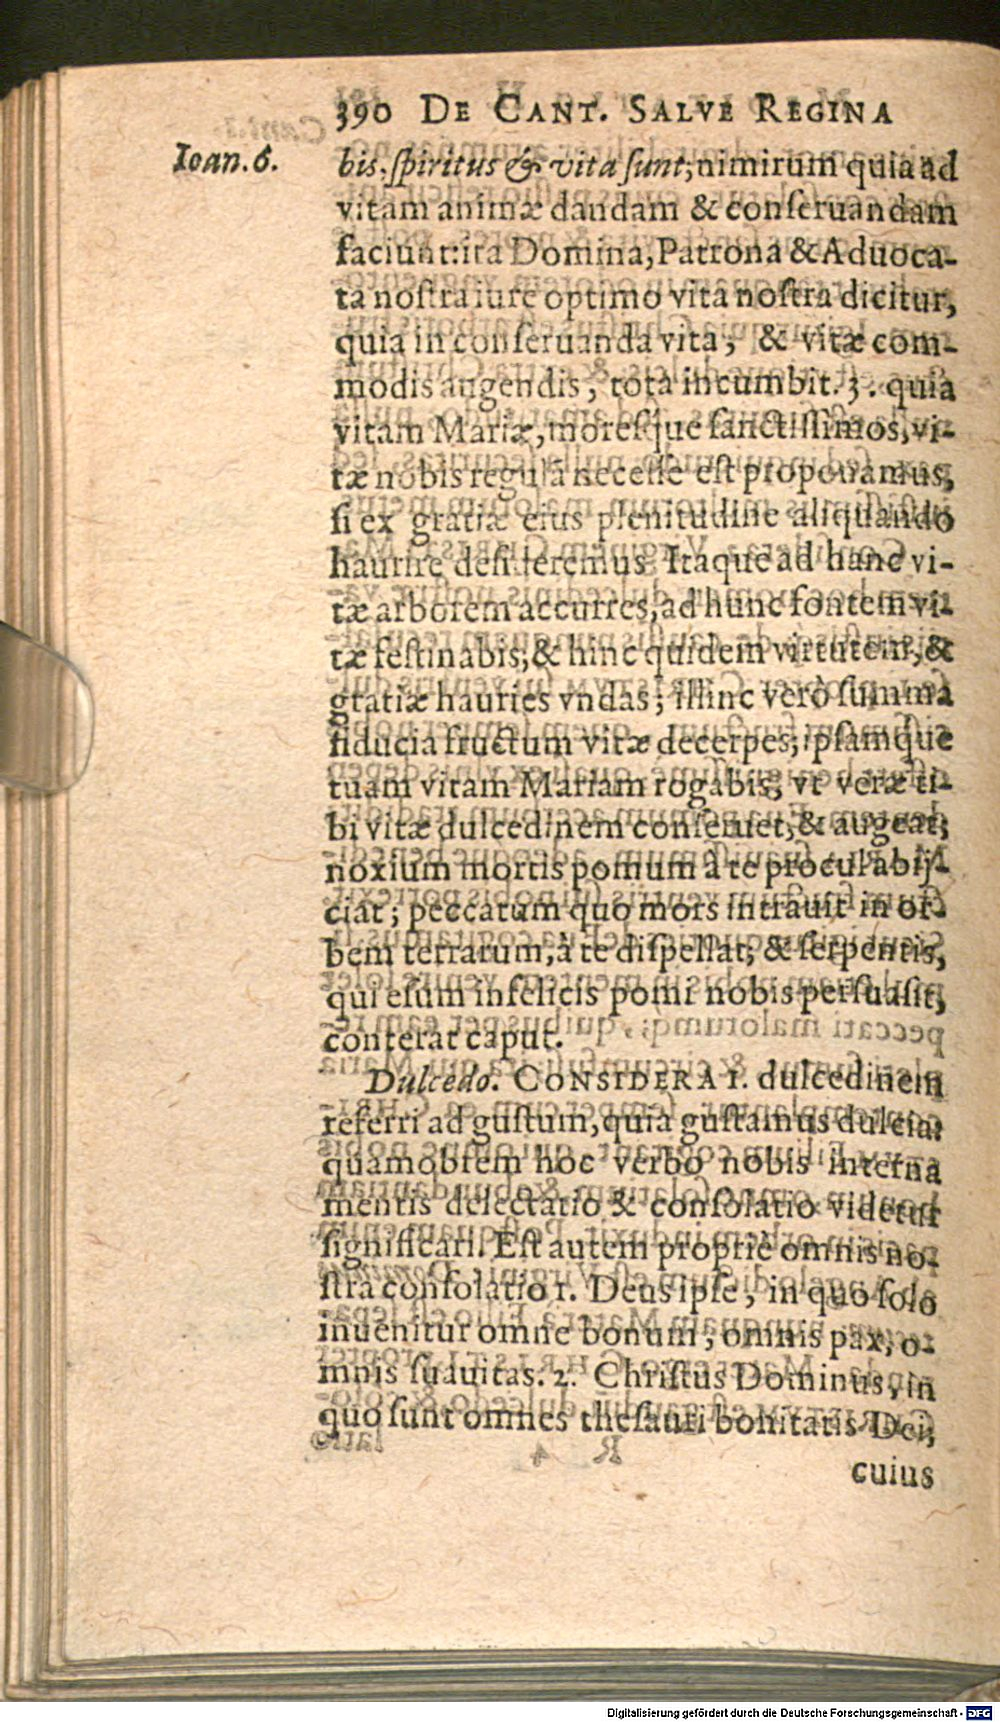 390 DE CANT. SALVE REGINA
Ioan. 6.
bis, ſpiritus & vita ſunt; nimirum quia ad
vitam animæ dandam & conſeruandam
faciunt: ita Domina, Patrona & Aduoca-
ta noſtra iure optimo vita noſtra dicitur,
quia in conſeruanda vita, & vitæ com-
modis augendis, tota incumbit. 3. quia
vitam Mariæ, moreſque ſanctiſſimos, vi-
tæ nobis regulã neceſſe eſt proponamus,
ſi ex gratiæ eius plenitudine aliquando
haurire deſideremus. Itaque ad hanc vi-
tæ arborem accurres, ad hunc fontem vi-
tæ feſtinabis, & hinc quidem virtutem, &
gratiæ hauries vndas; illinc verò ſumma
fiducia fructum vitæ decerpes; ipſamque
tuam vitam Mariam rogabis, vt veræ ti-
bi vitæ dulcedinem conſeruet, & augeat;
noxium mortis pomum à te procul abij-
ciat; peccatum quo mors intrauit in or-
bem terrarum, à te diſpellat; & ſerpentis,
qui eſum infelicis pomi nobis perſuaſit,
conterat caput.
Dulcedo. CONSIDERA 1. dulcedinem
referri ad guſtum, quia guſtamus dulcia:
quamobrem hoc verbo nobis interna
mentis delectatio & conſolatio videtur
ſignificari. Eſt autem propriè omnis no-
ſtra conſolatio 1. Deus ipſe, in quo ſolo
inuenitur omne bonum, omnis pax, o-
mnis ſuauitas. 2. Chriſtus Dominus, in
quo ſunt omnes theſauri bonitatis Dei,
cuius
Digitalisierung gefördert durch die Deutsche Forschungsgemeinschaft - DFG